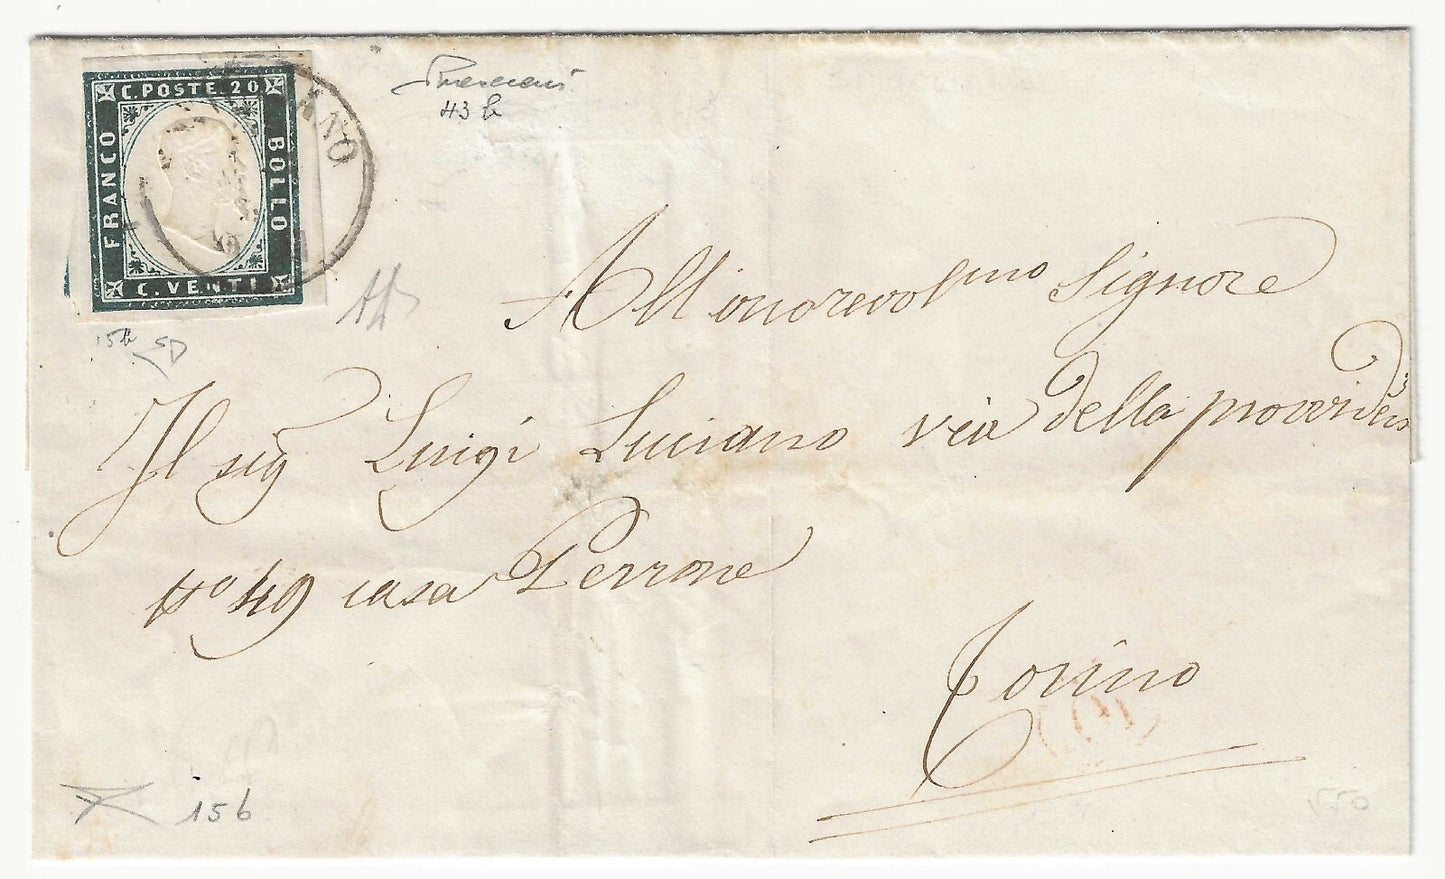 C. POSTE. 20
FRANCO
BOLLO
C. VENTI
ANO
43 b
15b SD
All'onorevolmo Signore
Il sigr Luigi Luciano via della providenza
No 49 casa Perrone
Torino
15 b
550